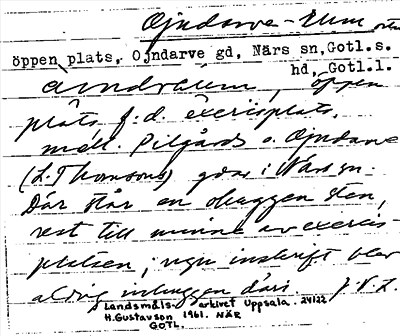 Ojndarve-Rum
öppen plats, Ojndarve gd, Närs sn, Gotl.s.
hd, Gotl.l.
öppen
plats, f.d. exercisplats,
mell. Pilgårds o. Ojndarve
(L. Thomsons) gdar i Närs sn.
Där står en obuggen sten,
rest till minne av exercis-
platsen; ngn inskrift blev
aldrig inhuggen däri.
Landsmåls- arkivet Uppsala. 24122
H. Gustavson 1961. NÄR
GOTL.